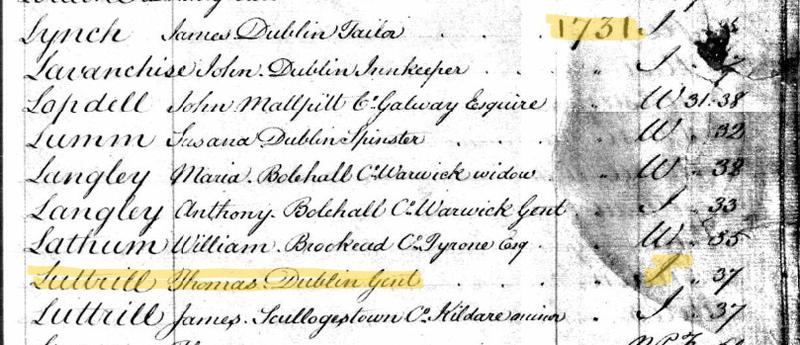 Lynch James Dublin Tailor 1731 I
Lavanchise John Dublin Innkeeper " I
Lopdell John Mallpitt Co Galway Esquire " W 31.38
Lumm Susana Dublin Spinster " W 32
Langley Maria Bolehall Co Warwick widow " W 32
Langley Anthony Bolehall Co Warwick Gent " I 33
Lathum William Brookead Co Tyrone Esq " W 35
Luttrill Thomas Dublin Gent " I 37
Luttrill James Scullogestown Co Kildare minor " I 37